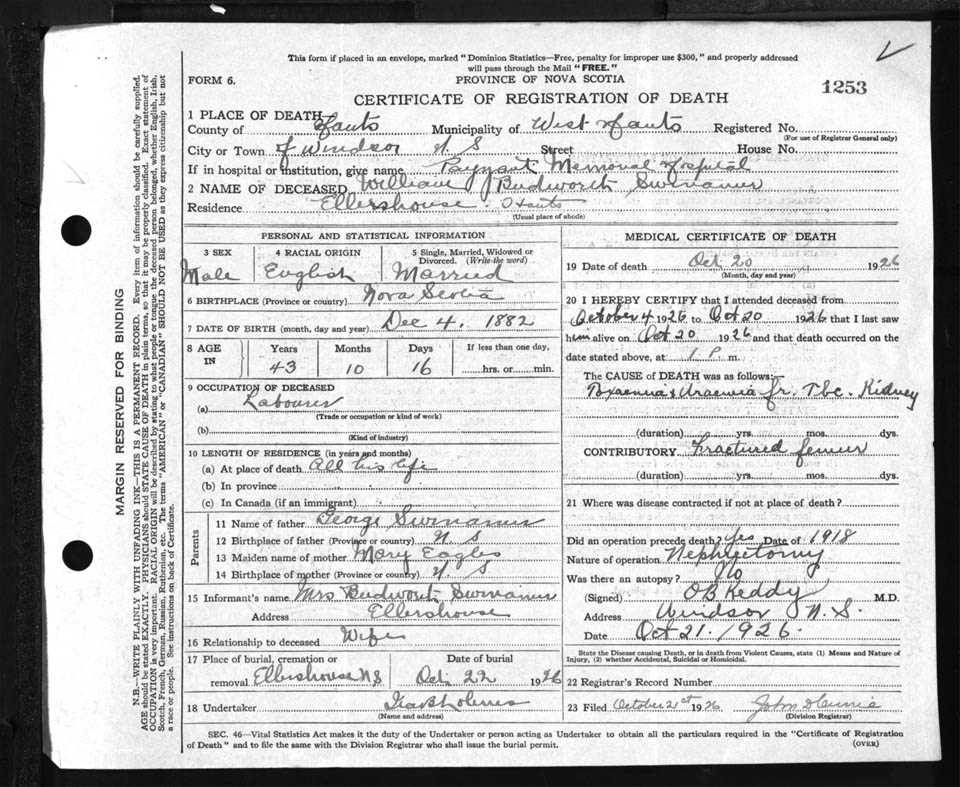 This form if placed in an envelope, marked "Dominion Statistics—Free, penalty for improper use $300," and properly addressed
will pass through the Mail "FREE."
FORM 6.
PROVINCE OF NOVA SCOTIA
1253
CERTIFICATE OF REGISTRATION OF DEATH
1 PLACE OF DEATH
County of Hants Municipality of West Hants Registered No.
(For use of Registrar General only)
City or Town of Windsor N. S Street House No.
If in hospital or institution, give name Payzant Memorial Hospital
2 NAME OF DECEASED William Budworth
Residence Ellershouse Hants
(Usual place of abode)
PERSONAL AND STATISTICAL INFORMATION
3 SEX 4 RACIAL ORIGIN 5 Single, Married, Widowed or Divorced. (Write the word)
Male English Married
6 BIRTHPLACE (Province or country) Nova Scotia
7 DATE OF BIRTH (month, day and year) Dec 4. 1882
8 AGE IN Years Months Days If less than one day,
43 10 16 hrs. or min.
9 OCCUPATION OF DECEASED
(a) Labourer
(Trade or occupation or kind of work)
(b)
(Kind of industry)
10 LENGTH OF RESIDENCE (in years and months)
(a) At place of death All his life
(b) In province
(c) In Canada (if an immigrant)
Parents
11 Name of father George
12 Birthplace of father (Province or country) N. S
13 Maiden name of mother Mary Eagles
14 Birthplace of mother (Province or country) N. S
15 Informant's name Mrs Budworth
Address Ellershouse
16 Relationship to deceased Wife
17 Place of burial, cremation or removal Ellershouse N S Date of burial Oct. 22 1926
18 Undertaker
(Name and address)
MEDICAL CERTIFICATE OF DEATH
19 Date of death Oct 20 1926
(Month, day and year)
20 I HEREBY CERTIFY that I attended deceased from
October 4 1926 to Oct 20 1926 that I last saw
him alive on Oct 20 1926 and that death occurred on the
date stated above, at 1 P. m.
The CAUSE of DEATH was as follows:—
Toxaemia & Uraemia fr. Tbc. Kidney
(duration) yrs. mos. dys.
CONTRIBUTORY Fractured femur
(duration) yrs. mos. dys.
21 Where was disease contracted if not at place of death?
Did an operation precede death? Yes Date of 1918
Nature of operation Nephrectomy
Was there an autopsy? No
(Signed) O B Keddy M.D.
Address Windsor N. S.
Date Oct 21. 1926.
State the Disease causing Death, or in death from Violent Causes, state (1) Means and Nature of
Injury, (2) whether Accidental, Suicidal or Homicidal.
22 Registrar's Record Number
23 Filed October 21st 1926 John
(Division Registrar)
SEC. 46—Vital Statistics Act makes it the duty of the Undertaker or person acting as Undertaker to obtain all the particulars required in the "Certificate of Registration
of Death" and to file the same with the Division Registrar who shall issue the burial permit.
(OVER)
MARGIN RESERVED FOR BINDING
N.B.—WRITE PLAINLY WITH UNFADING INK—THIS IS A PERMANENT RECORD. Every item of information should be carefully supplied.
AGE should be stated EXACTLY. PHYSICIANS should STATE CAUSE OF DEATH in plain terms, so that it may be properly classified. Exact statement of
OCCUPATION is very important. RACIAL ORIGIN will be described by stating to what people or tongue the deceased person belonged, whether English, Irish,
Scotch, French, German, Russian, Ruthenian, etc. The terms "AMERICAN" or "CANADIAN" SHOULD NOT BE USED as they express citizenship but not
a race or people. See instructions on back of Certificate.